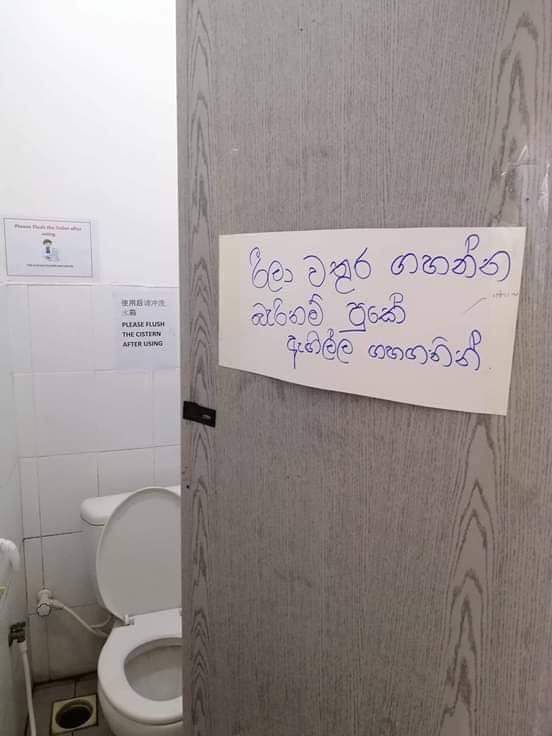 Please Flush the Toilet after using
使用后请冲洗
水箱
PLEASE FLUSH
THE CISTERN
AFTER USING
රීලා වතුර ගහන්න
බැරිනම් පුකේ
ඇඟිල්ල ගහගනින්